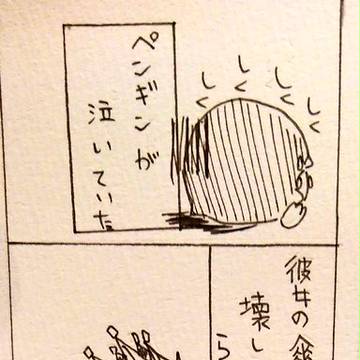 しく
しく
しく
しく
ペンギンが
泣いていた
彼女の傘
壊し
ら